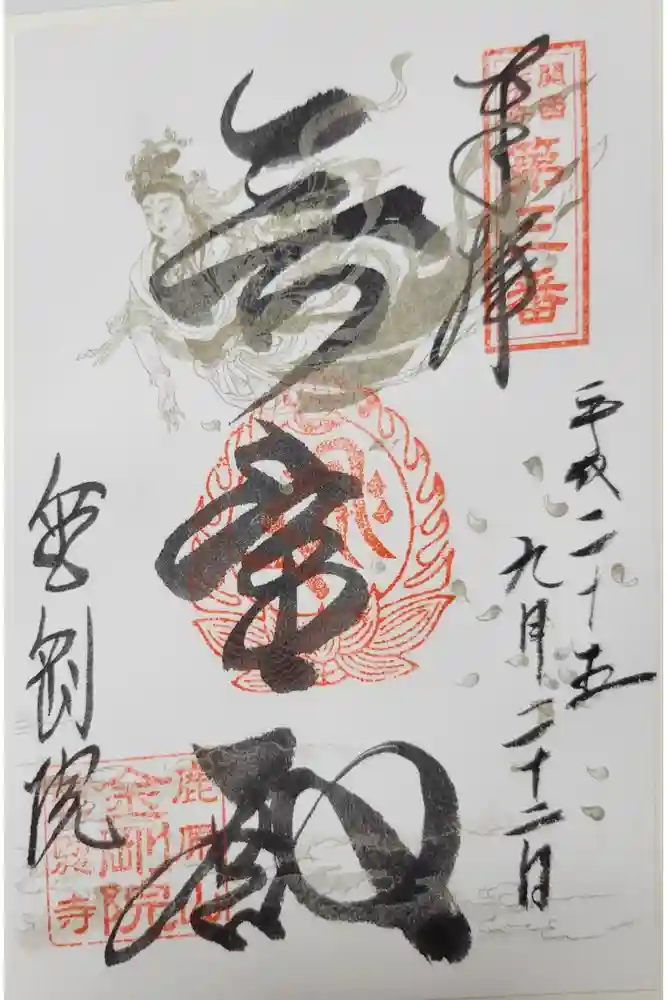 奉拝
関西
花の寺
第三番
平成二十五
九月二十二日
金剛院
鹿原山
金剛院
慈恩寺